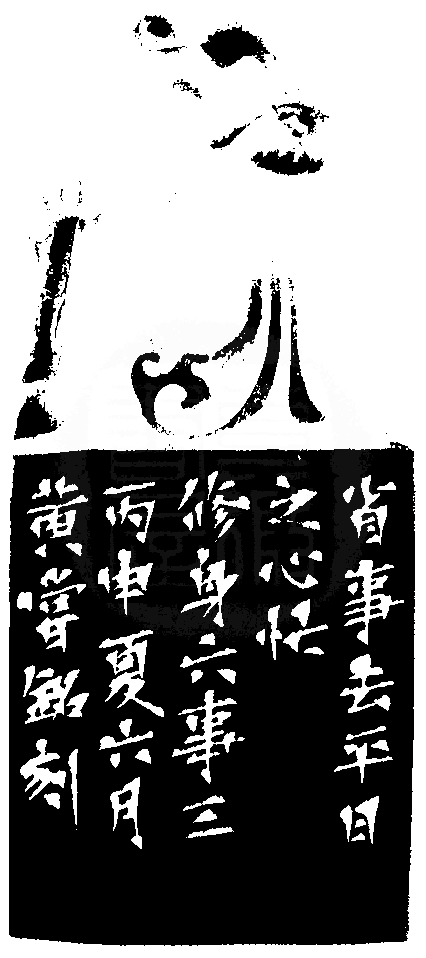 省事去平日
之心忙
修身六事三
丙申夏六月
黄嘗銘刻